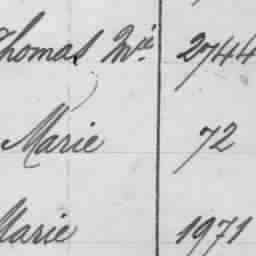 Thomas Mie 2744
Marie 72
Marie 1971